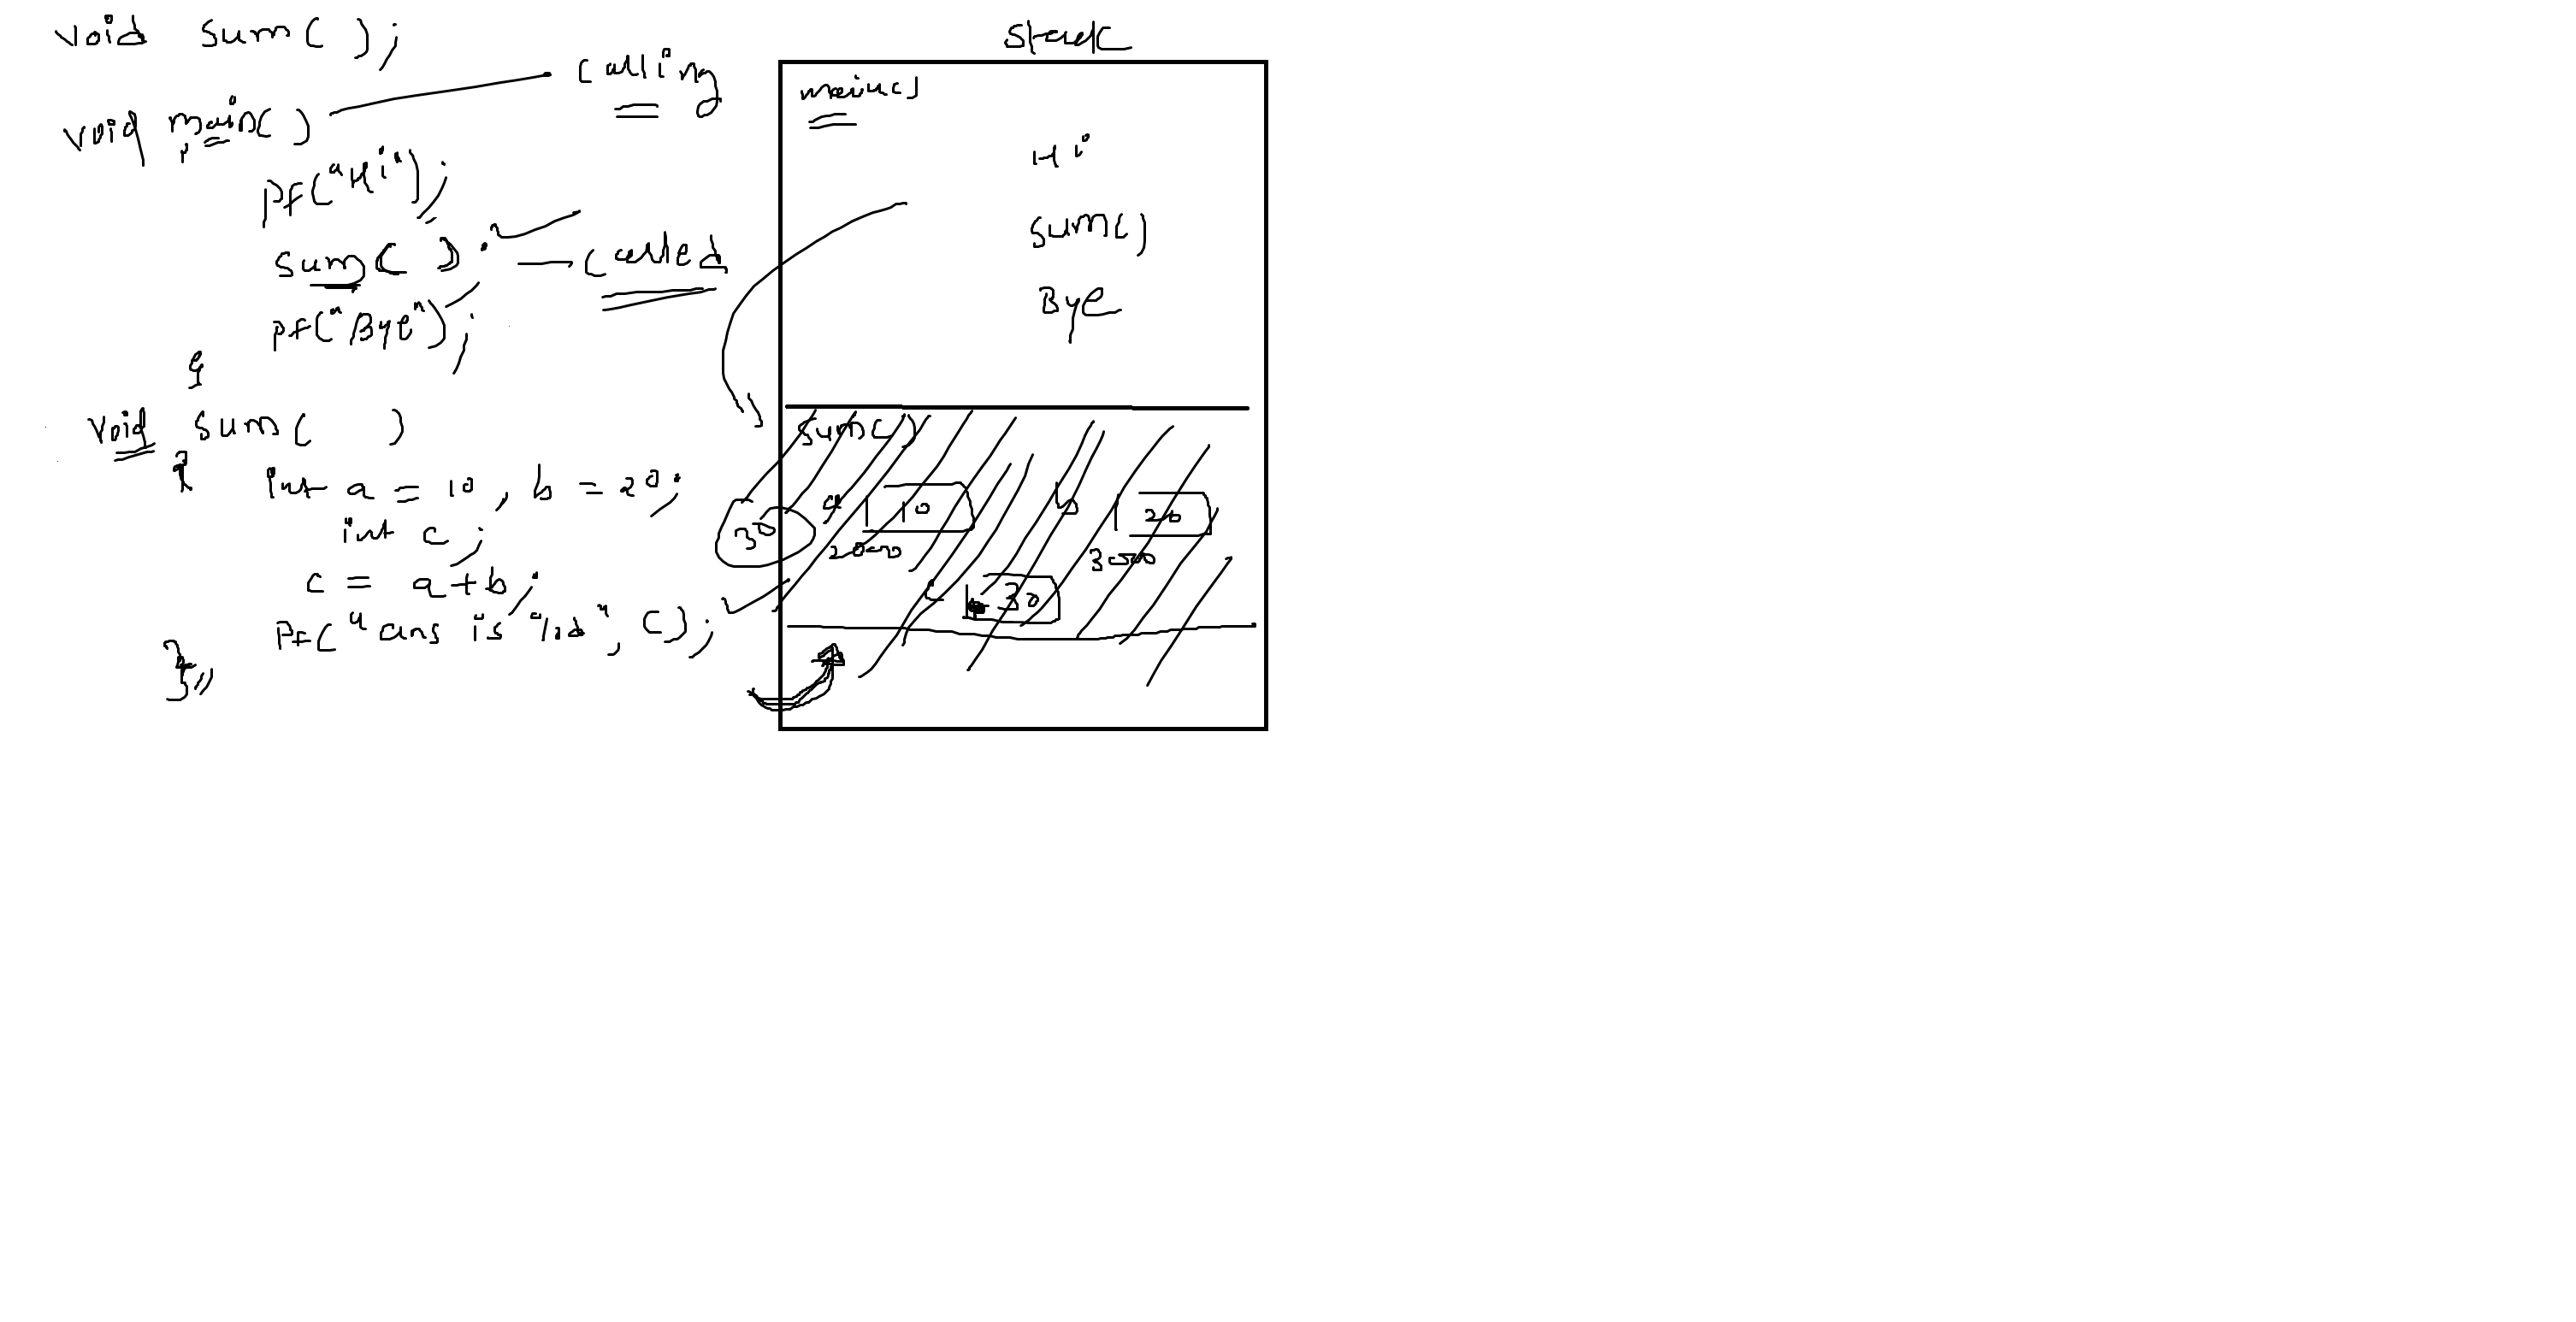 void sum( );
void main( )
calling
pf("Hi");
sum( ); — called
pf("Bye");
}
void sum( )
{ int a = 10, b = 20;
int c;
c = a+b;
PF("ans is %d", c);
}
Stack
main()
Hi
sum()
Bye
sum()
30
a 10
b 20
2000
3000
c 30